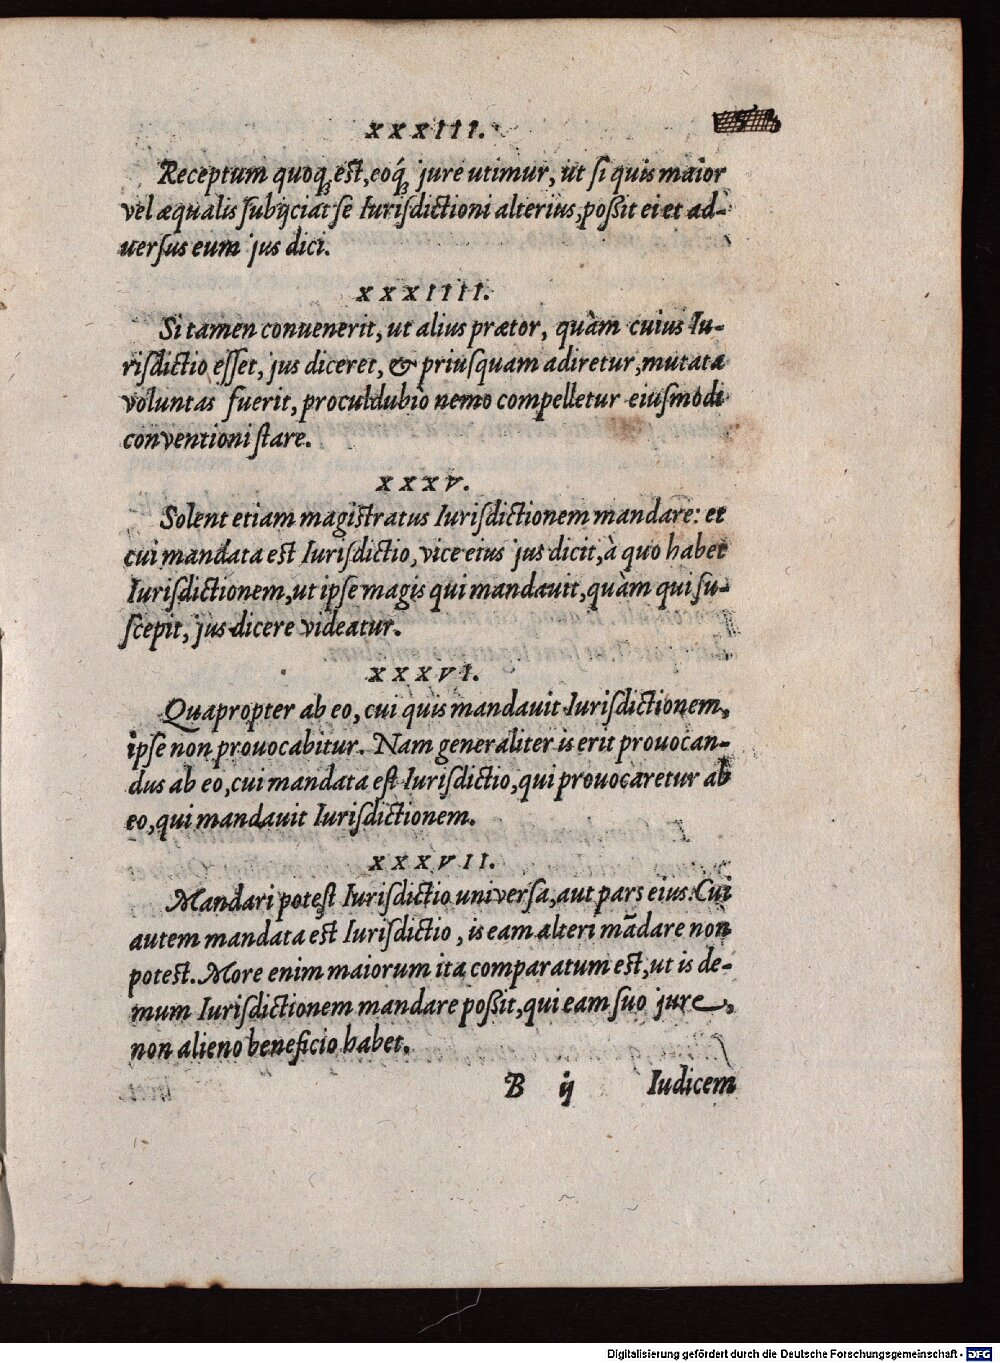 XXXIII.
Receptum quoq; est, eoq́; jure utimur, ut si quis maior
vel æqualis subijciat se Iurisdictioni alterius, possit ei et ad-
uersus eum jus dici.
XXXIIII.
Si tamen conuenerit, ut alius prætor, quàm cuius Iu-
risdictio esset, jus diceret, & priusquam adiretur, mutata
voluntas fuerit, proculdubiò nemo compelletur eiusmodi
conventioni stare.
XXXV.
Solent etiam magistratus Iurisdictionem mandare: et
cui mandata est Iurisdictio, vice eius jus dicit, à quo habet
Iurisdictionem, ut ipse magis qui mandauit, quàm qui su-
scepit, jus dicere videatur.
XXXVI.
Quapropter ab eo, cui quis mandauit Iurisdictionem,
ipse non prouocabitur. Nam generaliter is erit prouocan-
dus ab eo, cui mandata est Iurisdictio, qui prouocaretur ab
eo, qui mandauit Iurisdictionem.
XXXVII.
Mandari potest Iurisdictio universa, aut pars eius. Cui
autem mandata est Iurisdictio, is eam alteri mādare non
potest. More enim maiorum ita comparatum est, ut is de-
mum Iurisdictionem mandare possit, qui eam suo jure,
non alieno beneficio habet.
B ij Iudicem
Digitalisierung gefördert durch die Deutsche Forschungsgemeinschaft - DFG